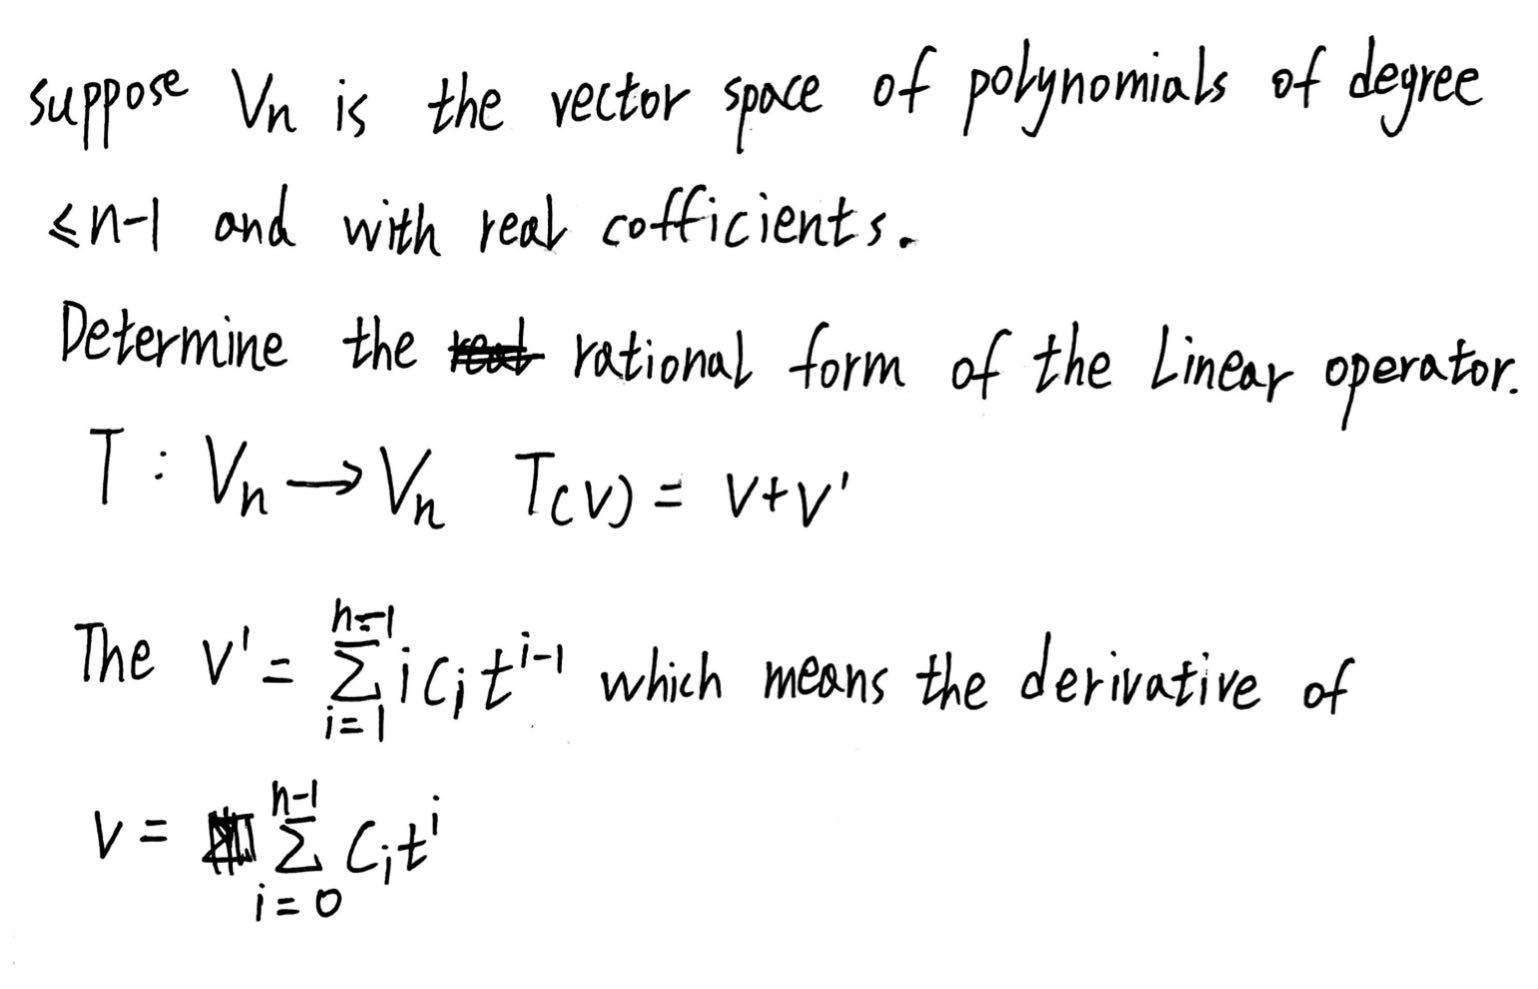 suppose Vn is the vector space of polynomials of degree
≤n-1 and with real cofficients.
Determine the rational form of the Linear operator.
T : Vn → Vn T(v) = v+v'
The v' = \sum_{i=1}^{n-1} i c_i t^{i-1} which means the derivative of
v = \sum_{i=0}^{n-1} c_i t^i